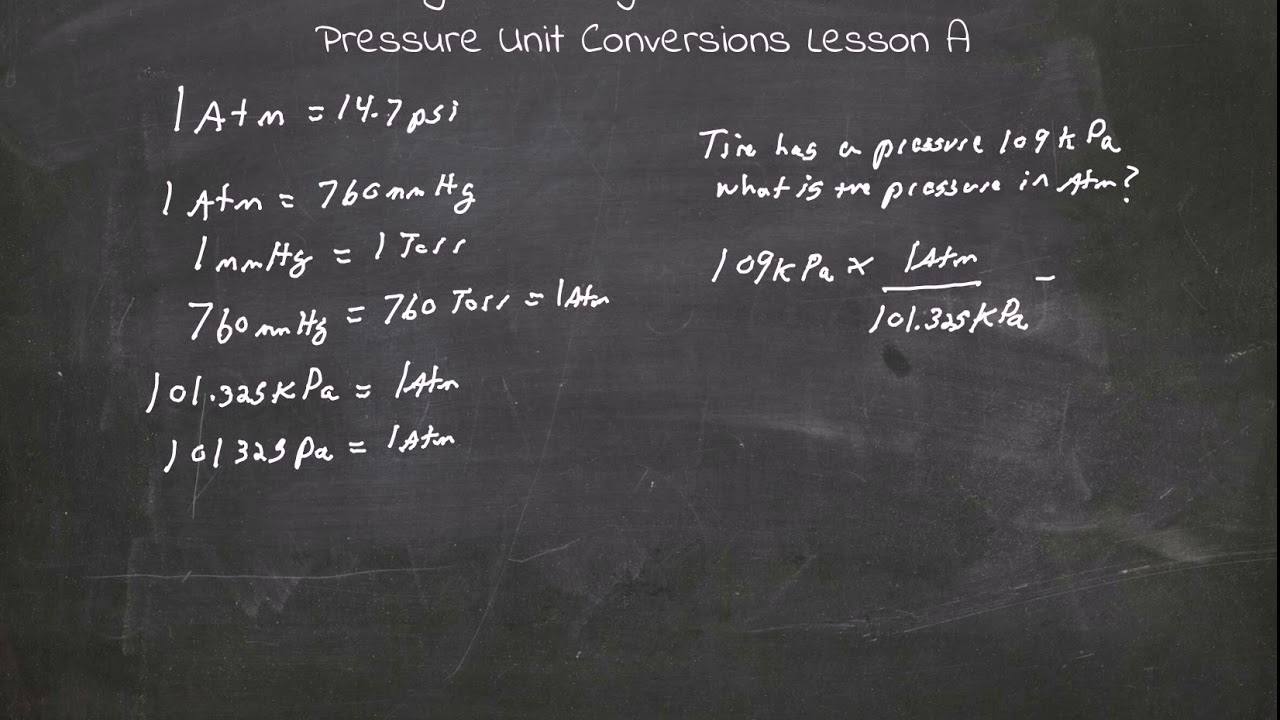 Pressure Unit Conversions Lesson A
1 Atm = 14.7 psi
1 Atm = 760 mmHg
1 mmHg = 1 Torr
760 mmHg = 760 Torr = 1 Atm
101.325 kPa = 1 Atm
101325 Pa = 1 Atm
Tire has a pressure 109 kPa
what is the pressure in Atm?
109 kPa × 1 Atm / 101.325 kPa =